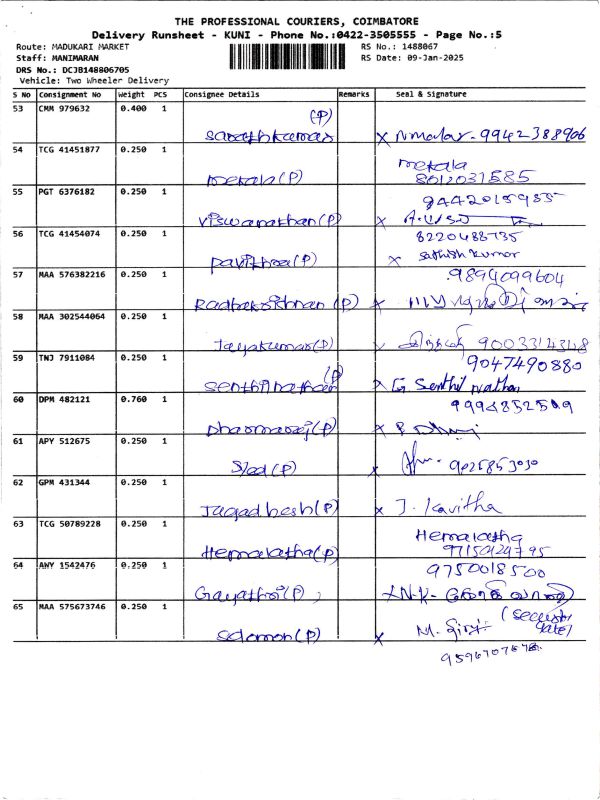 THE PROFESSIONAL COURIERS, COIMBATORE
Delivery Runsheet - KUNI - Phone No.:0422-3505555 - Page No.:5
Route: MADUKARI MARKET RS No.: 1488067
Staff: MANIMARAN RS Date: 09-Jan-2025
DRS No.: DCJB148806705
Vehicle: Two Wheeler Delivery
S No Consignment No Weight PCS Consignee Details Remarks Seal & Signature
53 CMM 979632 0.400 1 (P)
Sarathkumar x Nmalar - 9942388906
54 TCG 41451877 0.250 1 mekala
mekala (P) 8012031585
55 PGT 6376182 0.250 1
viswanathan (P) x
56 TCG 41454074 0.250 1 8220488735
pavithra (P) x Sathish kumar
57 MAA 576382216 0.250 1 9894099604
Radhakrishnan (P) x
58 MAA 302544064 0.250 1
Jayakumar (P)
59 TNJ 7911084 0.250 1 (P) 9047490880
x G Senthil nathan
60 DPM 482121 0.760 1
Dharmaraj (P) x P
61 APY 512675 0.250 1
(P) x 9025853030
62 GPM 431344 0.250 1
Jagadhesh (P) x J. Kavitha
63 TCG 50789228 0.250 1 Hemalatha
Hemalatha (P)
64 AWY 1542476 0.250 1 9750018500
Gayathri (P) x N.K-
65 MAA 575673746 0.250 1 (Security Gate)
Solomon (P) x M. Giri